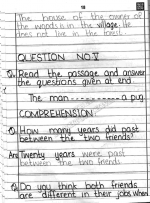 18
The house of the owner of
the woods is in the village. He
does not live in the forest.
QUESTION NO.V
Q. Read the passage and answer
the questions given at end.
The man ------------ a pug
COMPREHENSION:
Q. How many years did past
between the two friends?
Ans Twenty years were past
between the two friends.
Q. Do you think both friends
are different in their jobs when